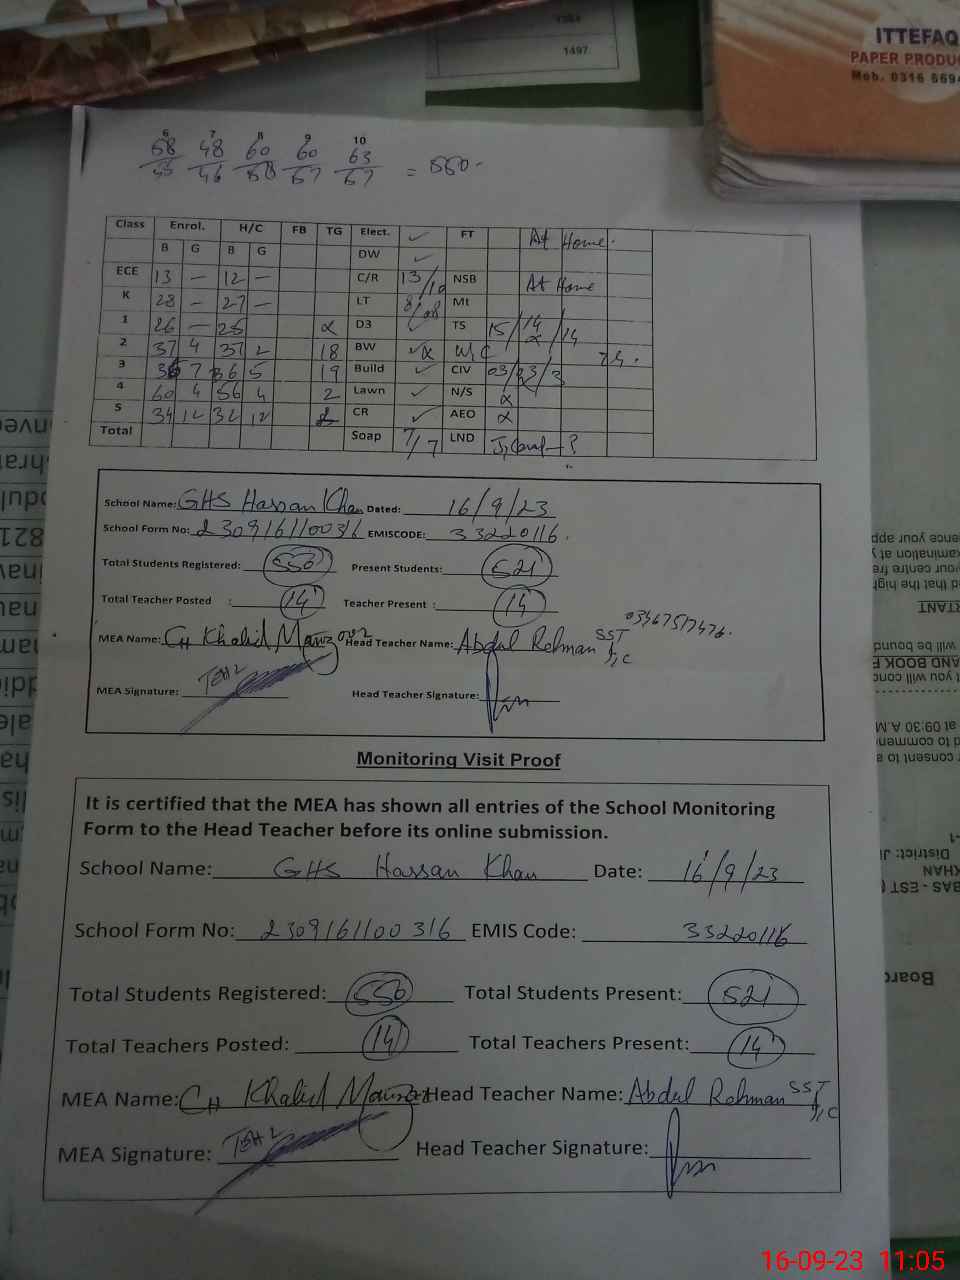 1497
ITTEFAQ
PAPER PRODU
Mob. 0316 669
6 7 8 9 10
58 48 60 60 63
46 57 57 = 550
Class Enrol. H/C FB TG Elect. ✓ FT At Home.
B G B G DW ✓
ECE 13 — 12 — C/R 13/10 NSB At Home
K 28 — 27 — LT Mt
1 26 — 25 α D3 TS 15/14/14
2 37 4 37 2 18 BW ✓α W,C
3 36 7 36 5 19 Build ✓ CIV 03/23/3
4 60 4 56 4 2 Lawn ✓ N/S α
5 34 12 32 12 CR ✓ AEO α
Total Soap 7/7 LND
School Name: GHS Hassan Khan Dated: 16/9/23
School Form No: 2309161100316 EMISCODE: 33220116
Total Students Registered: 550 Present Students: 521
Total Teacher Posted : 14 Teacher Present : 14
03467517476.
MEA Name: CH Khalid Head Teacher Name: Abdul Rehman SST
I,C
MEA Signature: TEH 2 Head Teacher Signature:
Monitoring Visit Proof
It is certified that the MEA has shown all entries of the School Monitoring
Form to the Head Teacher before its online submission.
School Name: GHS Hassan Khan Date: 16/9/23
School Form No: 2309161100316 EMIS Code: 33220116
Total Students Registered: 550 Total Students Present: 521
Total Teachers Posted: 14 Total Teachers Present: 14
MEA Name: CH Khalid Head Teacher Name: Abdul Rehman SST
I,C
MEA Signature: TEH 2 Head Teacher Signature:
16-09-23 11:05